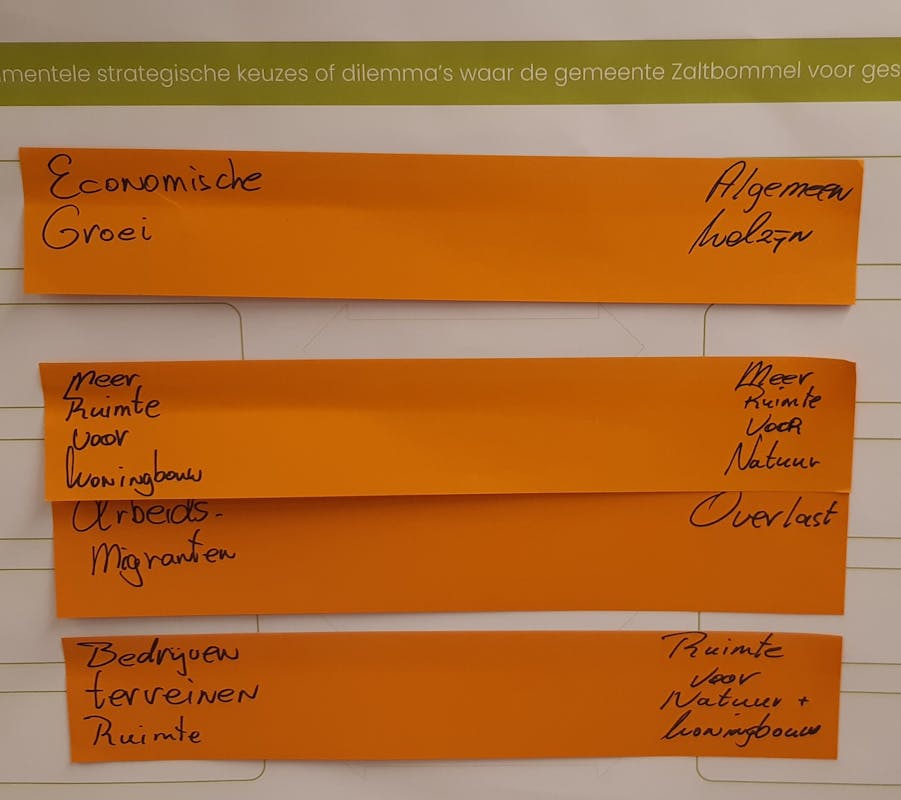 mentele strategische keuzes of dilemma's waar de gemeente Zaltbommel voor ges
Economische
Groei
Algemeen
Welzijn
Meer
Ruimte
voor
Woningbouw
Meer
Ruimte
voor
Natuur
Arbeids-
Migranten
Overlast
Bedrijven
terreinen
Ruimte
Ruimte
voor
Natuur +
Woningbouw